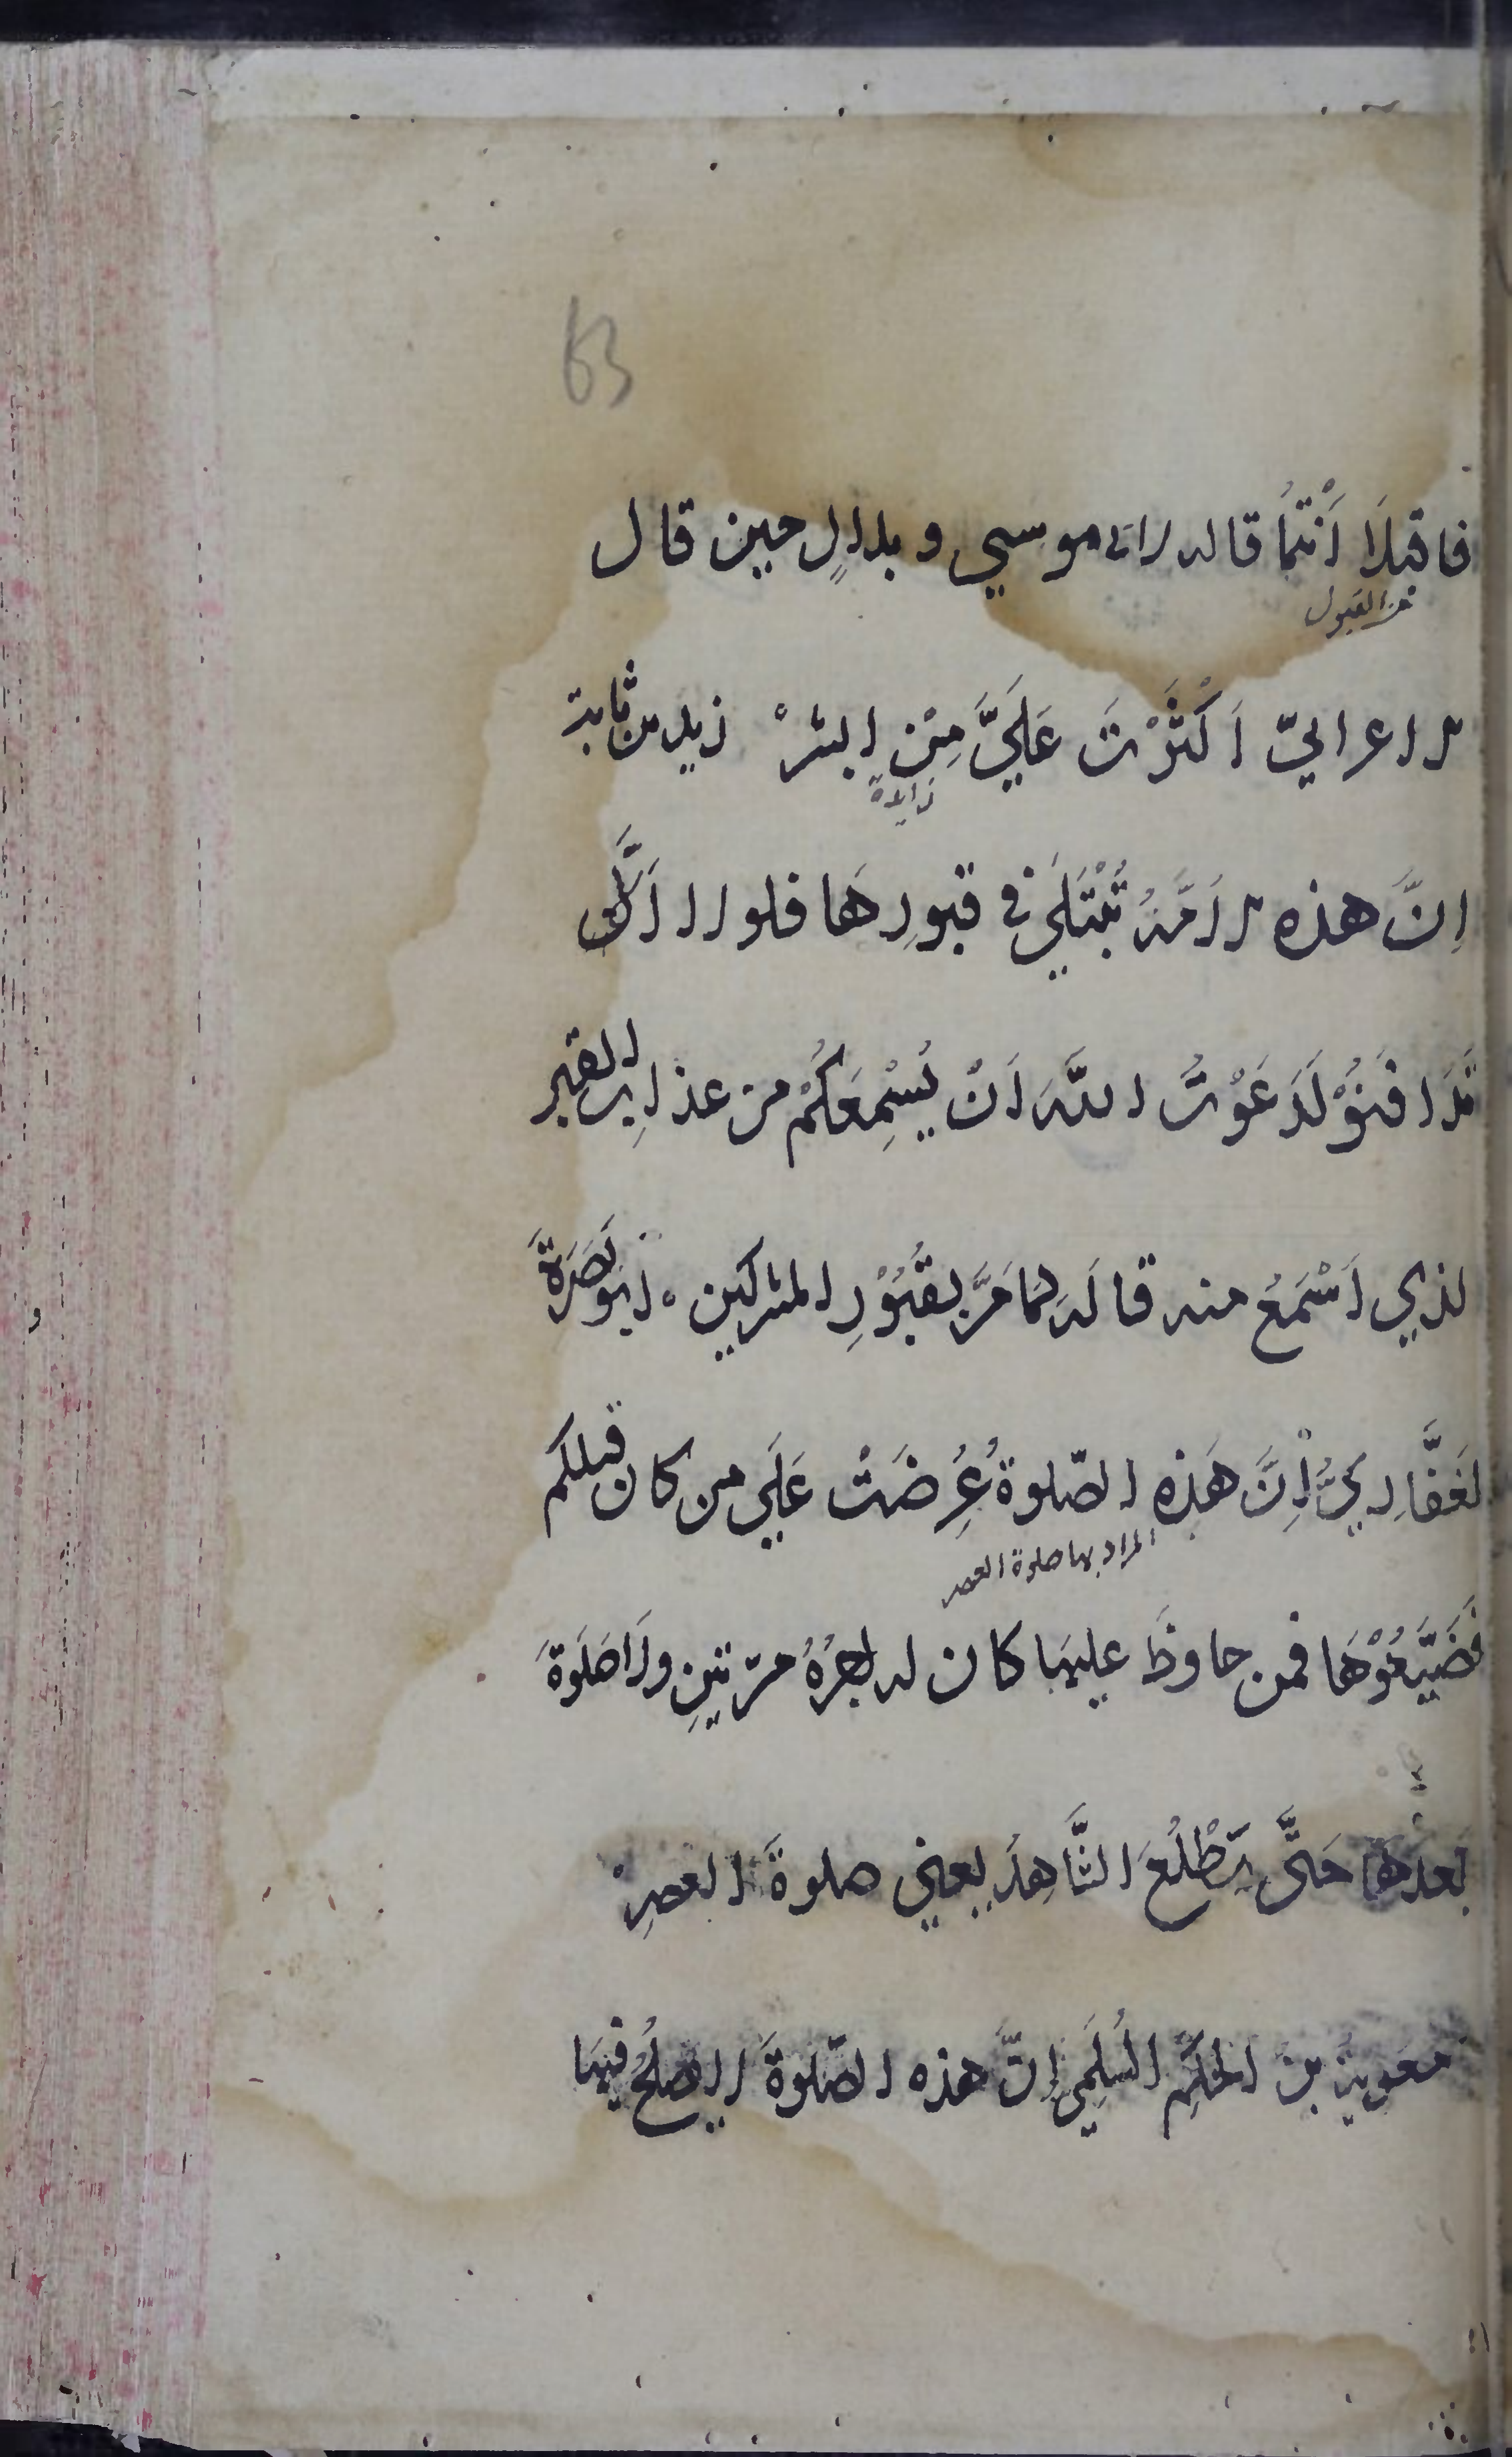 63
فاقبلَا اَنْتُمَا قاله لابي موسي و بلالٍ حين قال
من القبول
الاعرابيّ اَكْثَرْتَ عَلَيَّ مِنْ ابشرْ زيد بن ثابت
زايدة
اِنَّ هذه الاَمّةُ تُبْتَلَي في قبورِهَا فلولا اَنْ لَّا
تَدَافَنُوْ لَدَعَوْتُ اللّهَ اَنْ يُسْمِعَكُمْ من عذابِ القبر
لذي اَسْمَعُ منه قالَه لمَا مَرَّ بقُبُوْرِ المشركين ۰ ابو بَصْرَةَ
لغَفَّارِيُّ اِنَّ هَذِهِ الصّلوةُ عُرِضَتْ عَلَي من كان قبلكم
المراد بها صلوة العصر
فَضَيَّعُوْهَا فمن حافظَ عليهَا كان له اجرُهُ مرّتينِ ولَا صَلَوةَ
بَعدهَا حَتَّى يَطْلُعَ الشَّاهِدُ يعني صلوةَ العصرِ
معوية بن الحَكَم السُلَمِي اِنَّ هذه الصّلوةَ لا يصلحُ فيهَا